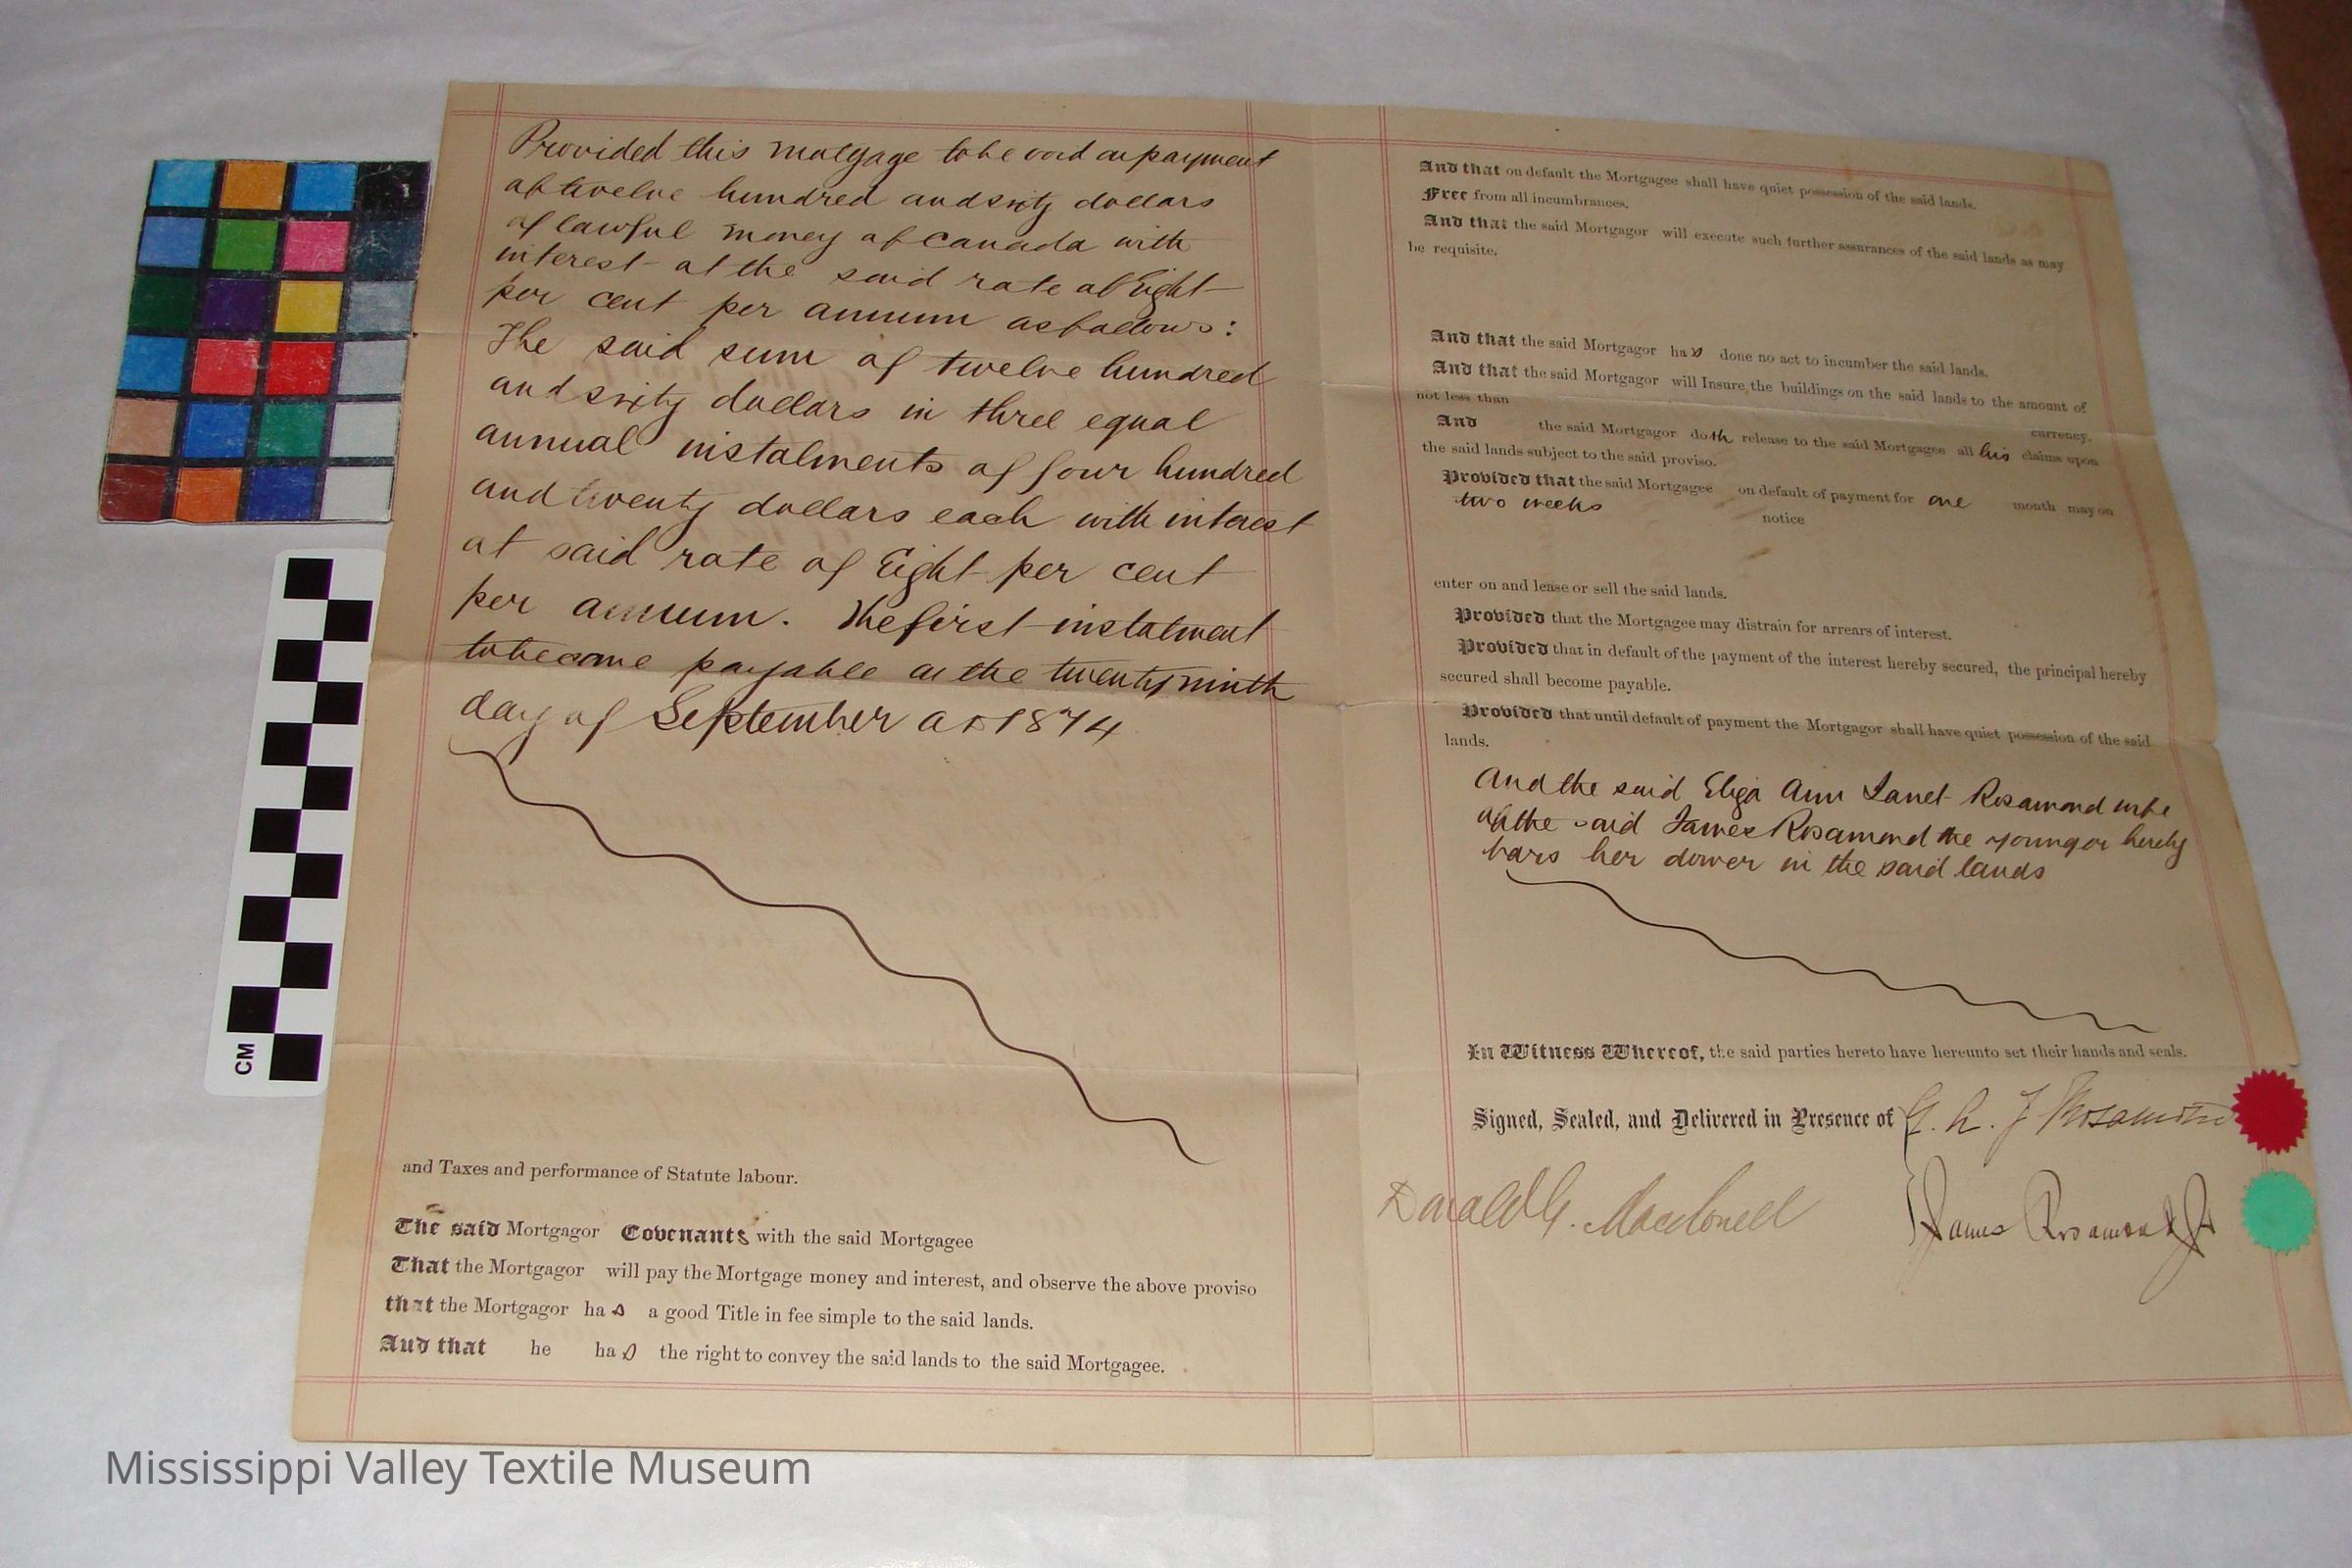 Provided this mortgage to be void on payment
of twelve hundred and sixty dollars
of lawful money of Canada with
interest at the said rate of Eight
per cent per annum as follows:
The said sum of twelve hundred
and sixty dollars in three equal
annual instalments of four hundred
and twenty dollars each with interest
at said rate of Eight per cent
per annum. The first instalment
to become payable on the twenty ninth
day of September AD 1874
and Taxes and performance of Statute labour.
The said Mortgagor Covenants with the said Mortgagee
That the Mortgagor will pay the Mortgage money and interest, and observe the above proviso
that the Mortgagor has a good Title in fee simple to the said lands.
And that he has the right to convey the said lands to the said Mortgagee.
And that on default the Mortgagee shall have quiet possession of the said lands.
Free from all incumbrances.
And that the said Mortgagor will execute such further assurances of the said lands as may
be requisite.
And that the said Mortgagor has done no act to incumber the said lands.
And that the said Mortgagor will Insure the buildings on the said lands to the amount of
not less than
currency.
And the said Mortgagor doth release to the said Mortgagee all his claims upon
the said lands subject to the said proviso.
Provided that the said Mortgagee on default of payment for one month may on
two weeks notice
enter on and lease or sell the said lands.
Provided that the Mortgagee may distrain for arrears of interest.
Provided that in default of the payment of the interest hereby secured, the principal hereby
secured shall become payable.
Provided that until default of payment the Mortgagor shall have quiet possession of the said
lands.
And the said Eliza Ann Janet Rosamond wife
of the said James Rosamond the younger hereby
bars her dower in the said lands
In Witness Whereof, the said parties hereto have hereunto set their hands and seals.
Signed, Sealed, and Delivered in Presence of
E. A. J Rosamond
Donald G. Macdonell
James Rosamond Jr
CM
Mississippi Valley Textile Museum